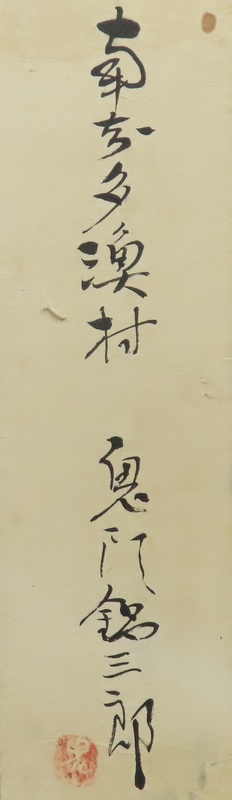 南知多漁村 鬼頭鍋三郎